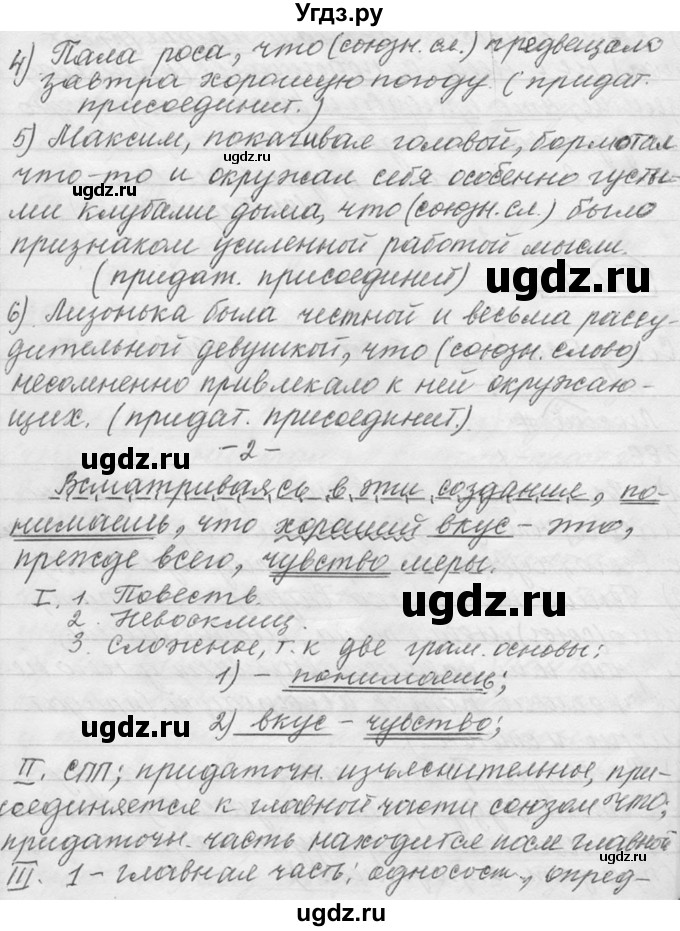 Угдз.ру
4) Пала роса, что (союзн. сл.) предвещало
завтра хорошую погоду. (придат.
присоединит.)
5) Максим, покачивая головой, бормотал
что-то и окружал себя особенно густы-
ми клубами дыма, что (союзн. сл.) было
признаком усиленной работой мысли.
(придат. присоединит)
6) Лизонька была честной и весьма рассу-
дительной девушкой, что (союзн. слово)
несомненно привлекало к ней окружаю-
щих. (придат. присоединит.)
-2-
Всматриваясь в эти создания, по-
нимаешь, что хороший вкус - это,
прежде всего, чувство меры.
I. 1. Повеств.
2. Невосклиц.
3. Сложное, т. к две грам. основы:
1) - понимаешь;
2) вкус - чувство;
II. СПП; придаточн. изъяснительное, при-
соединяется к главной части союзом что;
придаточн. часть находится после главной
III. 1 - главная часть: односост., опред-
ugdz.ru
ugdz.ru
ugdz.ru
ugdz.ru
ugdz.ru
ugdz.ru
ugdz.ru
ugdz.ru
ugdz.ru